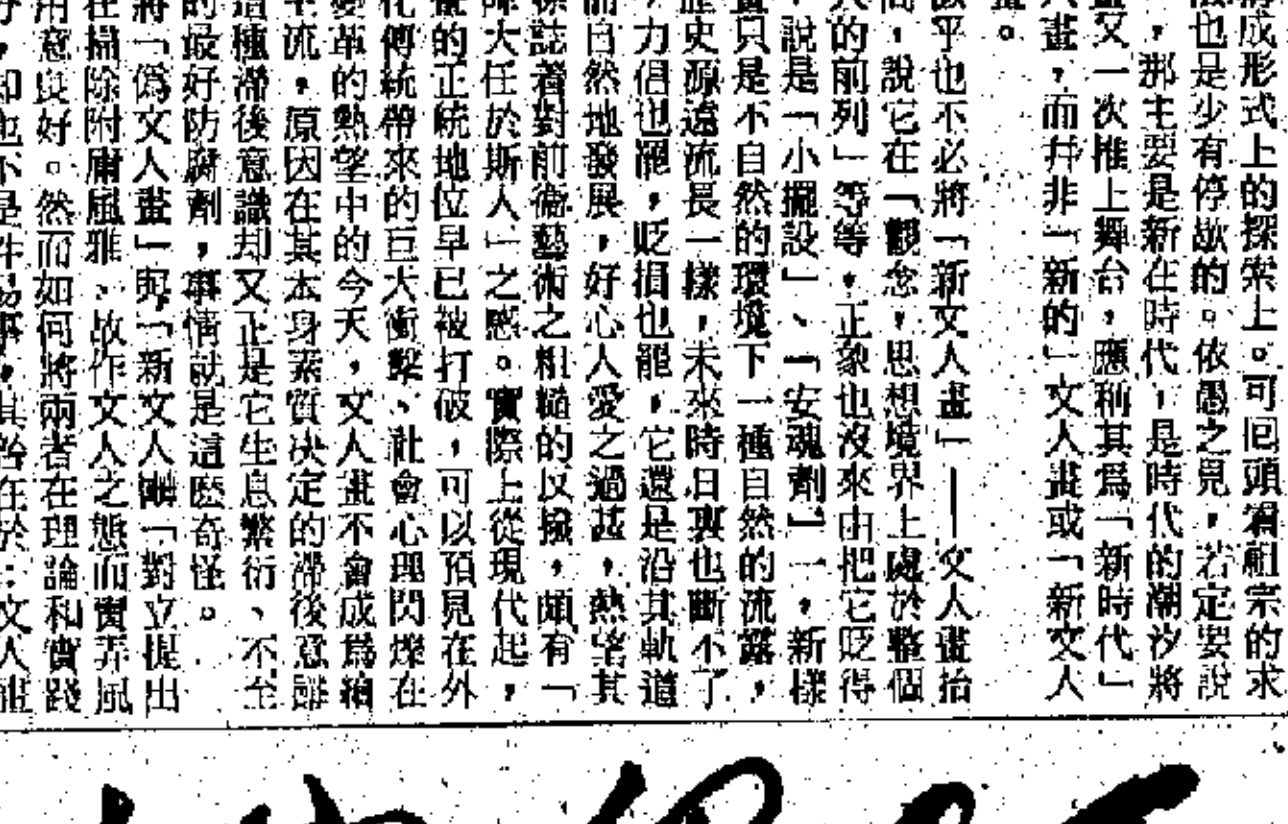 成形式上的探索上。可回頭看祖宗的求
也是少有停歇的。依愚之見，若定要說
，那主要是新在時代，是時代的潮汐將
又一次推上舞台，應稱其爲「新時代」
人畫，而并非「新的」文人畫或「新文人
畫。
平也不必將「新文人畫」——文人畫抬
，說它在「觀念，思想境界上處於整個
的前列」等等，正象也沒來由把它貶得
，說是「小擺設」、「安魂劑」一，新樣
畫只是不自然的環境下一種自然的流露，
歷史源遠流長一樣，未來時日裏也斷不了
力倡也罷，貶損也罷，它還是沿其軌道
而自然地發展，好心人愛之過甚，熱望其
標誌着對前衛藝術之粗糙的反撥，頗有「
降大任於斯人」之感。實際上從現代起，
畫的正統地位早已被打破，可以預見在外
化傳統帶來的巨大衝擊、社會心理閃爍在
變革的熱望中的今天，文人畫不會成爲繪
主流，原因在其本身素質决定的滯後意識
這種滯後意識却又正是它生息繁衍、不至
的最好防腐劑，事情就是這麽奇怪。
將「僞文人畫」與「新文人畫「對立提出
在掃除附庸風雅、故作文人之態而實弄風
用意良好。然而如何將兩者在理論和實踐
，却也不是件易事，其咎在於：文人